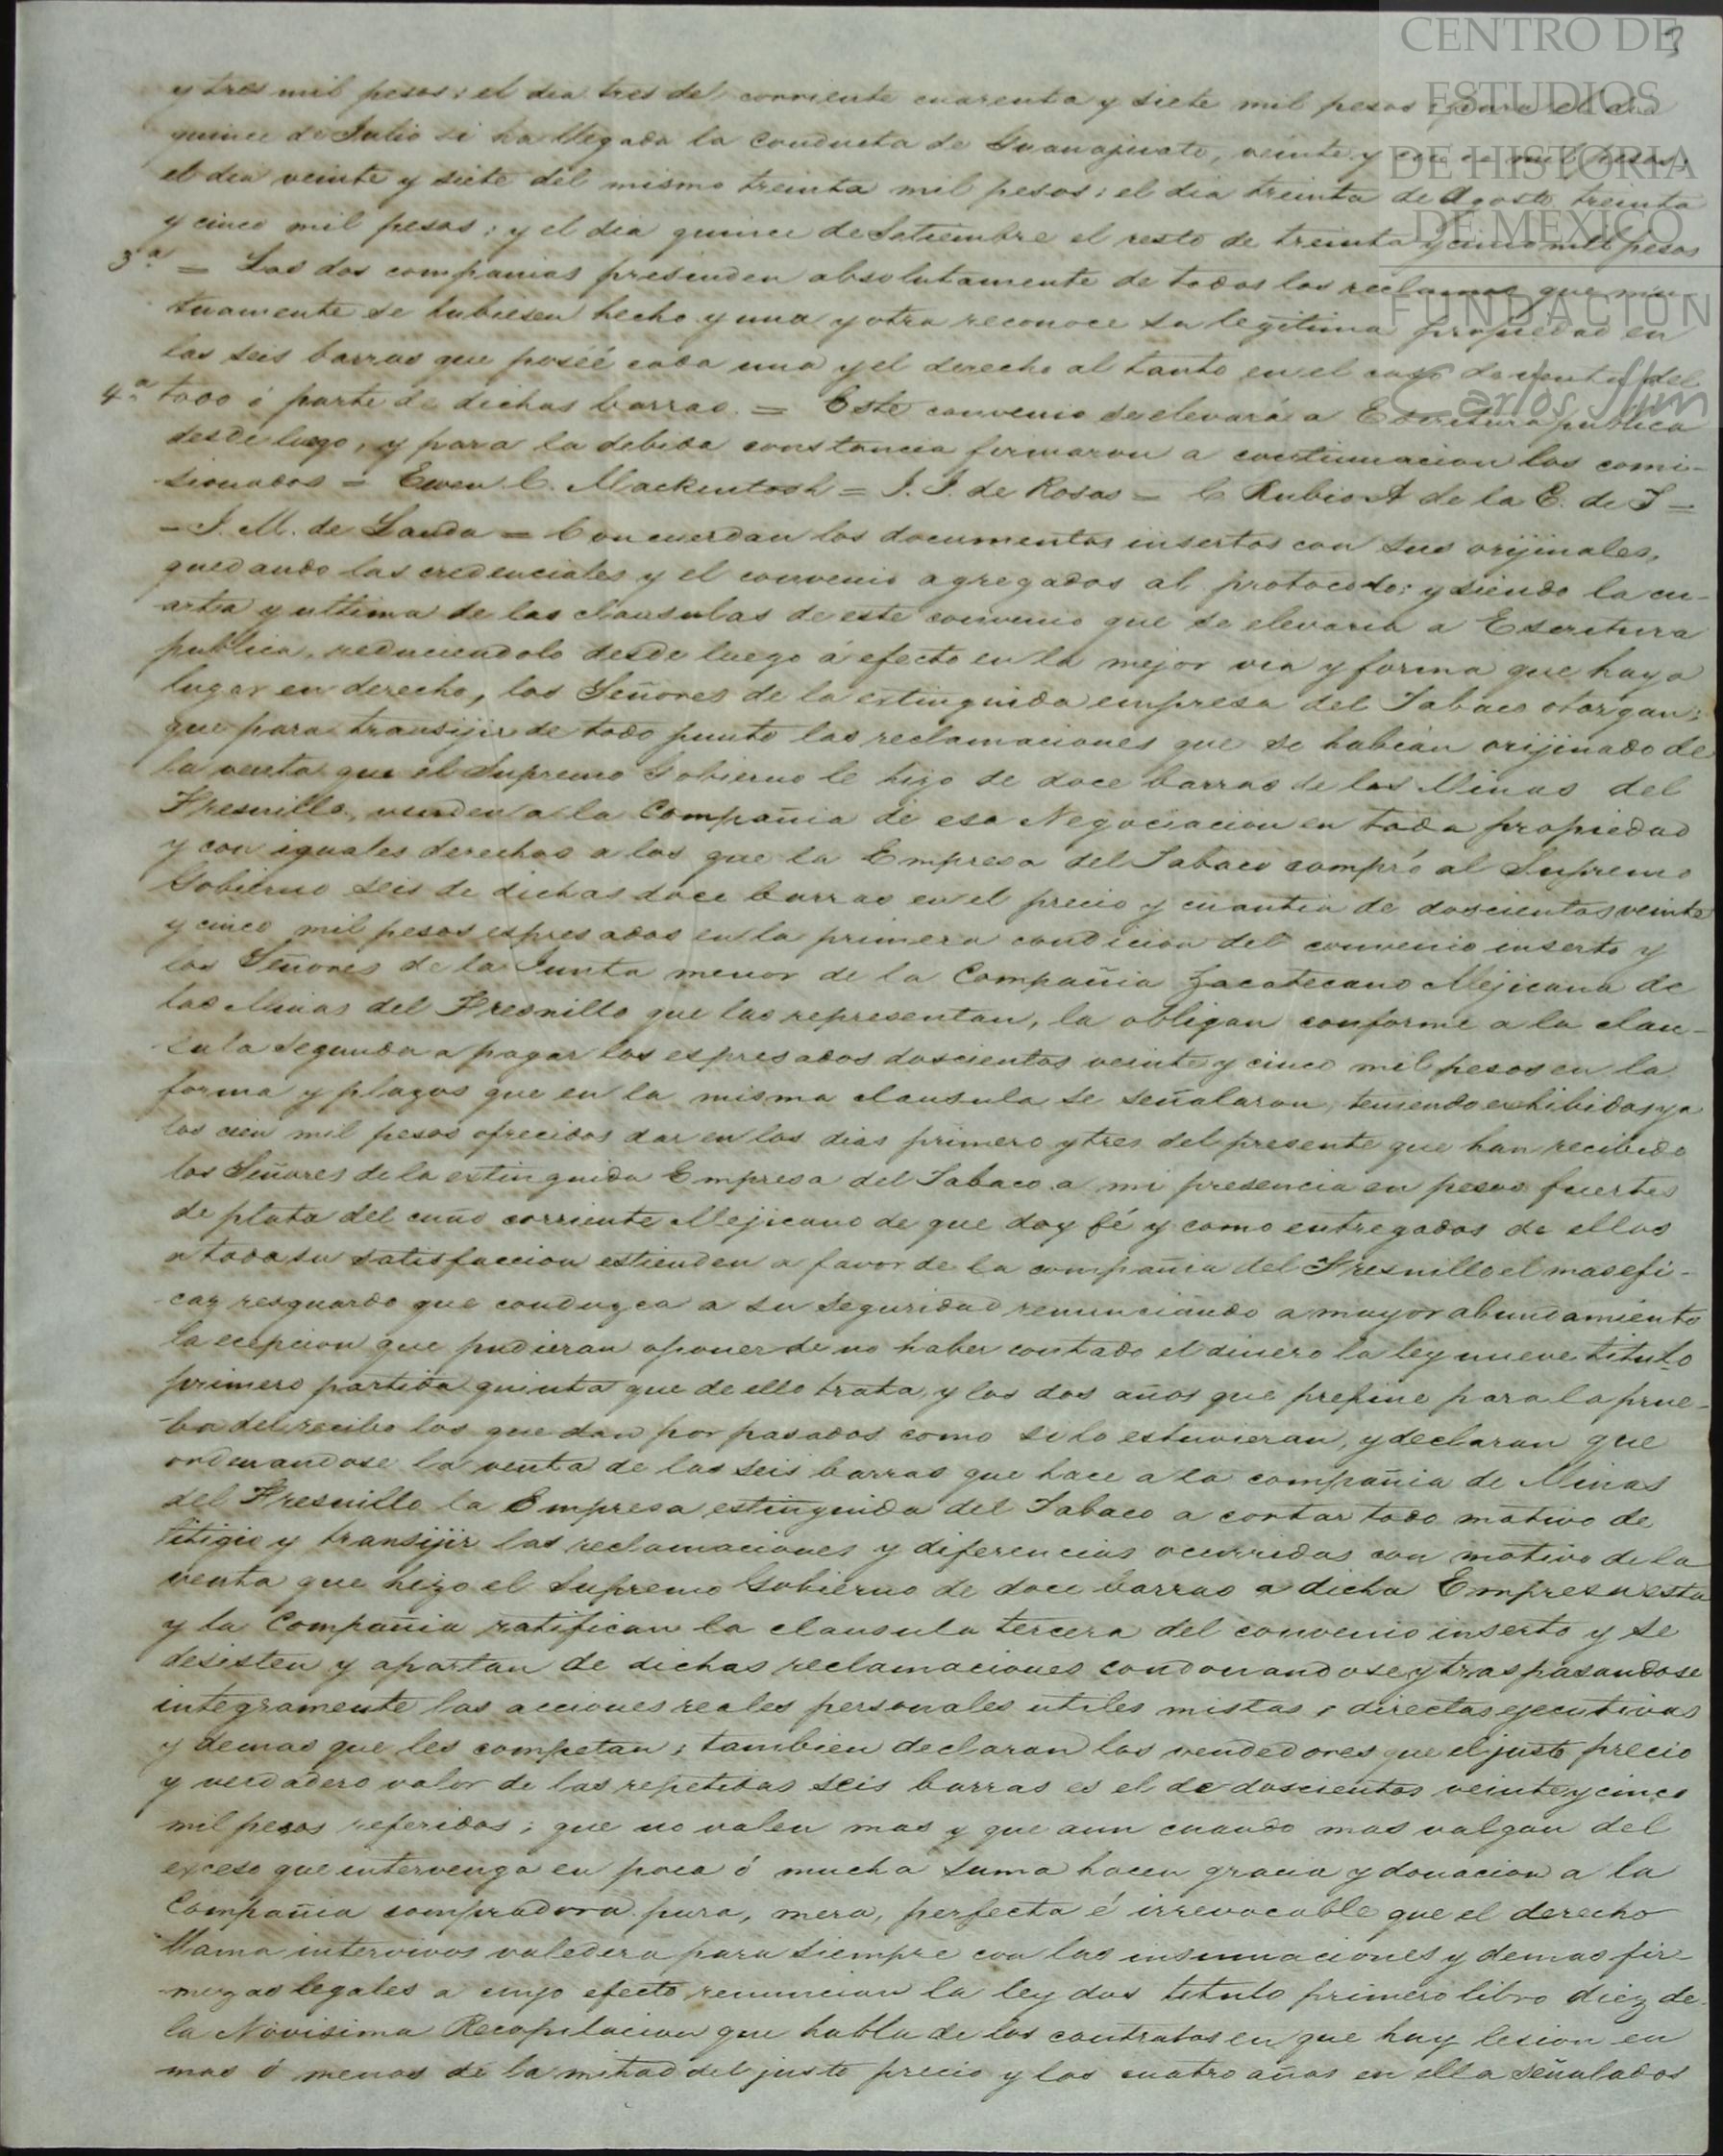 CENTRO DE
ESTUDIOS
DE HISTORIA
DE MEXICO
FUNDACIÓN
Carlos Slim
3
y tres mil pesos; el dia tres del corriente cuarenta y siete mil pesos; para el dia
quince de Julio si ha llegado la Conducta de Guanajuato, veinte y mil pesos;
el dia veinte y siete del mismo treinta mil pesos; el dia treinta de Agosto treinta
y cinco mil pesos; y el dia quince de Setiembre el resto de treinta y cinco mil pesos
3.a = Las dos companias presinden absolutamente de todos los reclamos que mu
tuamente se hubiesen hecho y una y otra reconoce su legitima propiedad en
las seis barras que poseé cada una y el derecho al tanto en el caso de venta del
4.a todo ó parte de dichas barras. = Este convenio se elevará a Escritura publica
desde luego, y para la debida constancia firmaron a continuacion los comi-
sionados = Ewen C. Mackentosh = J. J. de Rosas = C Rubio A de la E. de J =
= J. M. de Landa = Concuerdan los documentos insertos con sus orijinales,
quedando las credenciales y el convenio agregados al protocolo; y siendo la cu-
arta y ultima de las clausulas de este convenio que se elevaria a Escritura
publica, reduciendolo desde luego á efecto en la mejor via y forma que haya
lugar en derecho, los Señores de la extinguida empresa del Tabaco otorgan;
que para transijir de todo punto las reclamaciones que se habian orijinado de
la venta que el Supremo Gobierno le hizo de doce barras de las Minas del
Fresnillo, venden a la Compañia de esa Negociacion en toda propiedad
y con iguales derechos a los que la Empresa del Tabaco compró al Supremo
Gobierno seis de dichas doce barras en el precio y cuantia de doscientos veinte
y cinco mil pesos espresados en la primera condicion del convenio inserto y
los Señores de la Junta menor de la Compañia Zacatecano Mejicana de
las Minas del Fresnillo que las representan, la obligan conforme a la clau-
sula segunda a pagar los espresados doscientos veinte y cinco mil pesos en la
forma y plazos que en la misma clausula se señalaron, teniendo exhibidos ya
los cien mil pesos ofrecidos dar en los dias primero y tres del presente que han recibido
los Señores de la extinguida Empresa del Tabaco a mi presencia en pesos fuertes
de plata del cuño corriente Mejicano de que doy fé y como entregados de ellos
a toda su satisfaccion estienden a favor de la compañia del Fresnillo el mas efi-
caz resguardo que conduzca a su seguridad renunciando a mayor abundamiento
la ecepcion que pudieran oponer de no haber contado el dinero la ley nueve titulo
primero partida quinta que de ello trata, y los dos años que prefine para la prue-
ba del recibo los que dan por pasados como si lo estuvieran, y declaran que
ordenandose la venta de las seis barras que hace a la compañia de Minas
del Fresnillo la Empresa estinguida del Tabaco a cortar todo motivo de
litigio y transijir las reclamaciones y diferencias ocurridas con motivo de la
venta que hizo el Supremo Gobierno de doce barras a dicha Empresa esta
y la Compañia ratifican la clausula tercera del convenio inserto y se
desisten y apartan de dichas reclamaciones condonandose y traspasandose
integramente las acciones reales personales utiles mistas, directas ejecutivas
y demas que les competan; tambien declaran los vendedores que el justo precio
y verdadero valor de las repetidas seis barras es el de doscientos veinte y cinco
mil pesos referidos; que no valen mas y que aun cuando mas valgan del
exceso que intervenga en poca ó mucha suma hacen gracia y donacion a la
Compañia compradora pura, mera, perfecta é irrevocable que el derecho
llama intervivos valedera para siempre con las insinuaciones y demas fir-
mezas legales a cuyo efecto renuncian la ley dos titulo primero libro diez de
la Novisima Recopilacion que habla de los contratos en que hay lesion en
mas ó menos de la mitad del justo precio y los cuatro años en ella señalados